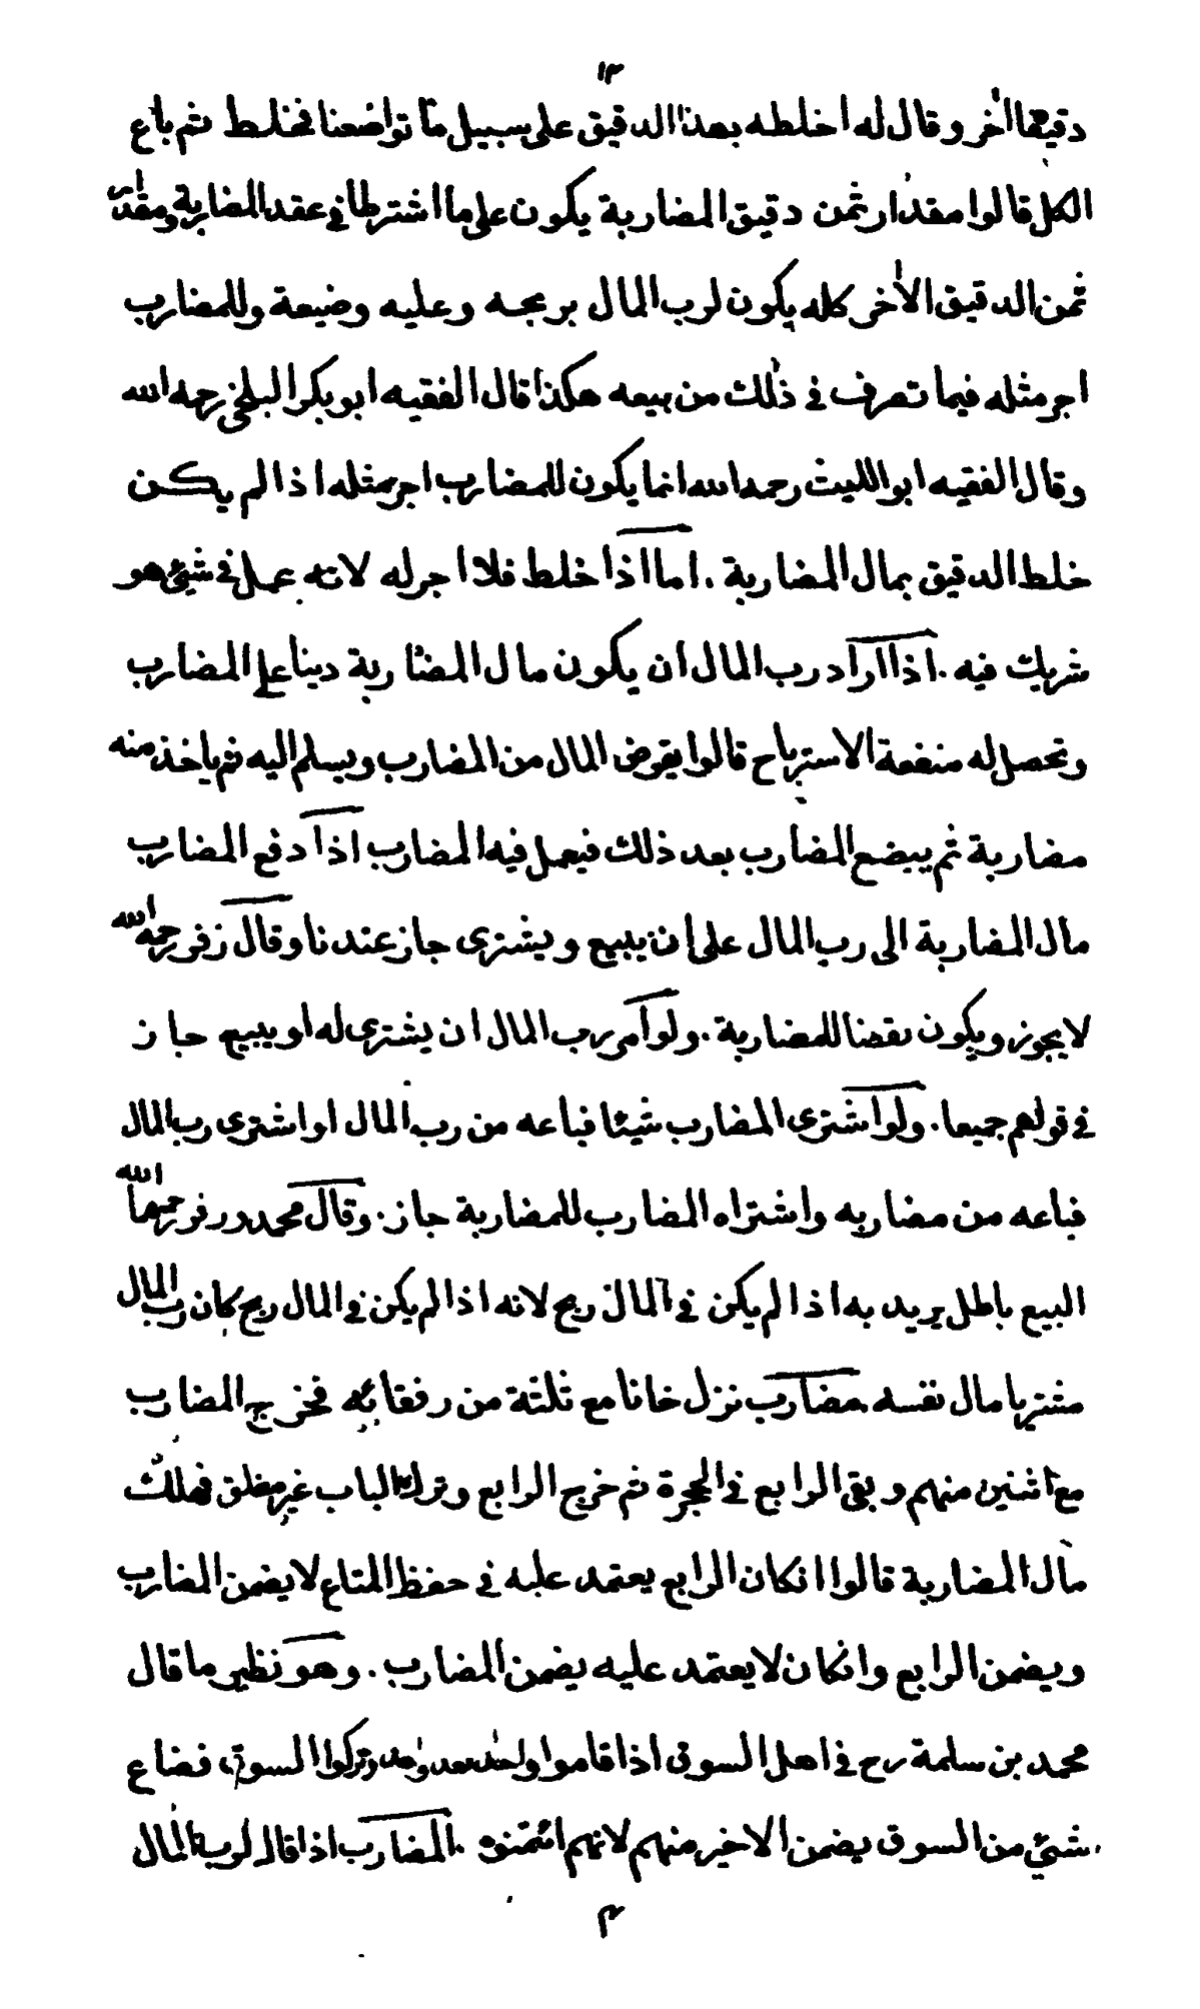 ١٣
دقيقا اٰخر وقال له اخلطه بهذا الدقيق على سبيل ما تواضعنا فخلط ثم باع
الكل قالوا مقدار ثمن دقيق المضاربة يكون على ما اشترطا في عقد المضاربة ومقدار
ثمن الدقيق الاٰخر كله يكون لرب المال بربحه وعليه وضيعة وللمضارب
اجر مثله فيما تصرف في ذٰلك من بيعه هكذا قال الفقيه ابو بكر البلخي رحمه الله
وقال الفقيه ابو الليث رحمه الله انما يكون للمضارب اجر مثله اذا لم يكن
خلط الدقيق بمال المضاربة . اما اذا خلط فلا اجر له لانه عمل في شيئ هو
شريك فيه . اذا اراد رب المال ان يكون مال المضاربة دينا على المضارب
وتحصل له منفعة الاسترباح قالوا يقرض المال من المضارب ويسلم اليه ثم ياخذ منه
مضاربة ثم يبضع المضارب بعد ذلك فيعمل فيه المضارب اذا دفع المضارب
مال المضاربة الى رب المال على ان يبيع ويشترى جاز عندنا وقال زفر رحمه الله
لا يجوز ويكون نقضا للمضاربة . ولو امر رب المال ان يشترى له او يبيع جاز
في قولهم جميعا . ولو اشترى المضارب شيئا فباعه من رب المال او اشترى رب المال
فباعه من مضاربه واشتراه المضارب للمضاربة جاز . وقال محمد وزفر رحمهما الله
البيع باطل يريد به اذا لم يكن في المال ربح لانه اذا لم يكن في المال ربح كان رب المال
مشتريا مال نفسه . مضارب نزل خانا مع ثلثة من رفقائه فخرج المضارب
مع اثنين منهم وبقى الرابع في الحجرة ثم خرج الرابع وترك الباب غير مغلق فهلك
مال المضاربة قالوا انكان الرابع يعتمد عليه في حفظ المتاع لا يضمن المضارب
ويضمن الرابع وانكان لا يعتمد عليه يضمن المضارب . وهو نظير ما قال
محمد بن سلمة رح في اهل السوق اذا قاموا واحد بعد واحد وتركوا السوق فضاع
شيئ من السوق يضمن الاخير منهم لانهم ائتمنوه . المضارب اذا قال لرب المال
م